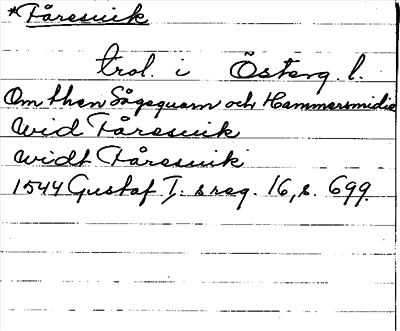 *Fåresuik
trol. i Österg. l.
Om then Sågequarn och Hammersmidie
wid Fåresuik
widt Fåresuik
1544 Gustaf I. s reg. 16, s. 699.